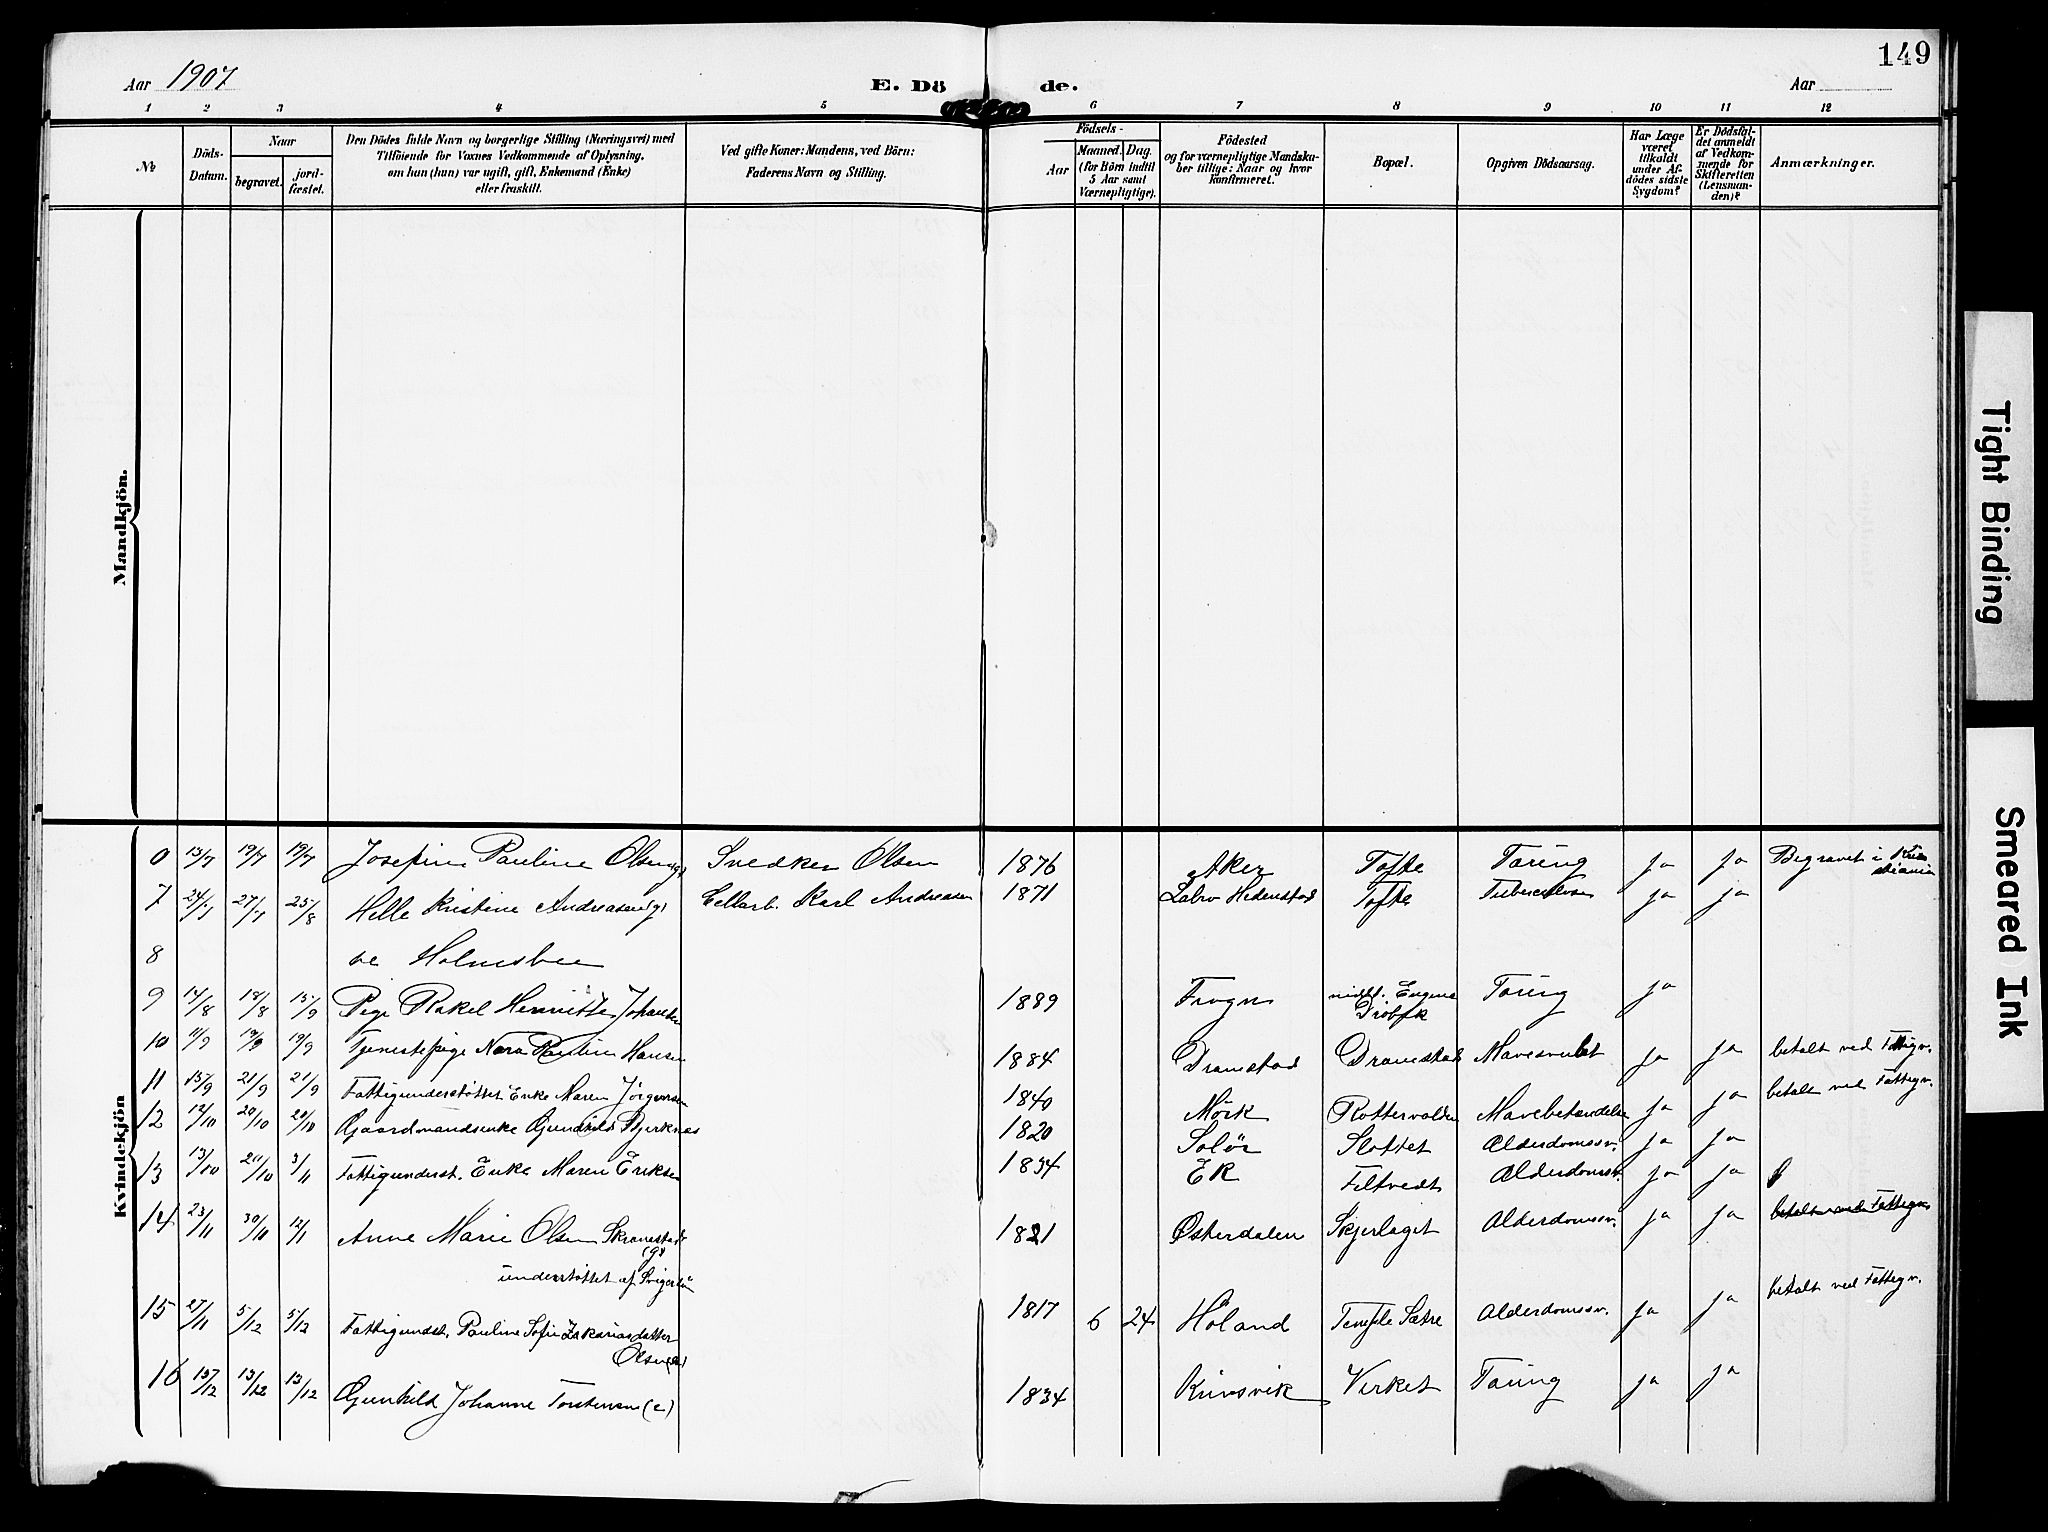 149
Aar 1907
E. Dö de.
Aar
1 2 3 4 5 6 7 8 9 10 11 12
No
Döds-Datum.
Naar
begravet.
jord-fæstet.
Den Dödes fulde Navn og borgerlige Stilling (Næringsvei) med
Tilföiende for Voxnes Vedkommende af Oplysning,
om han (hun) var ugift, gift, Enkemand (Enke)
eller fraskilt.
Ved gifte Koner: Mandens, ved Börn:
Faderens Navn og Stilling.
Födsels-
Aar
Maaned. Dag.
(for Börn indtil
5 Aar samt
Værnepligtige).
Födested
og for værnepligtige Mandska-
ber tillige: Naar og hvor
konfirmeret.
Bopæl.
Opgiven Dödsaarsag.
Har Læge
været
tilkaldt
under Af-
dödes sidste
Sygdom?
Er Dödsfal-
det anmeldt
af Vedkom-
mende for
Skifteretten
(Lensman-
den)?
Anmærkninger.
Mandkjön.
Kvindekjön
13/7 19/7 19/7 Josefine Pauline Olsen Svedker Olsen 1876 Aker Tofte Tæring ja ja Begravet i Kristiania
7 24/7 27/7 25/8 Helle Kristine Andreasen (g) Cellarb. Karl Andreasen 1871 Labro Hedenstad Tofte Tuberculose ja ja
8 se Holmsbu
9 14/8 18/8 15/9 Pige Rakel Henriette Johansen 1889 Frogn midl. Engene Drøbak Tæring ja
10 11/9 19/9 19/9 Tjenestepige Nora Pauline Hansen 1884 Dramstad Dramstad Mavesvulst ja ja betalt ved Fattigv.
11 15/9 21/9 21/9 Fattigunderstøttet Enke Maren Jørgensen 1840 Mörk Rottervolden Mavebetændelse ja ja betalt ved Fattigv.
12 12/10 20/10 20/10 Gaardmandsenke Gunhild Bjerknes 1820 Solör Slottet Alderdomssv. ja ja
13 13/10 20/10 3/11 Fattigunderst. Enke Maren Eriksen 1834 EK Filtvedt Alderdomssv. ja ja
14 23/11 30/10 12/1 Anne Marie Olsen Skranestad (g) 1821 Østerdalen Skjerlaget Alderdomssv. ja ja betalt ved Fattigv.
understöttet af Svigersön
15 27/11 5/12 5/12 Fattigundst. Pauline Sofie Zakariasdatter 1817 6 24 Höland Temple Sætre Alderdomssv. ja ja betalt ved Fattigv.
Olsen
16 13/12 13/12 Gunhild Johanne Torstensen (e) 1834 Virket Tæring ja ja
Tight Binding
Smeared Ink